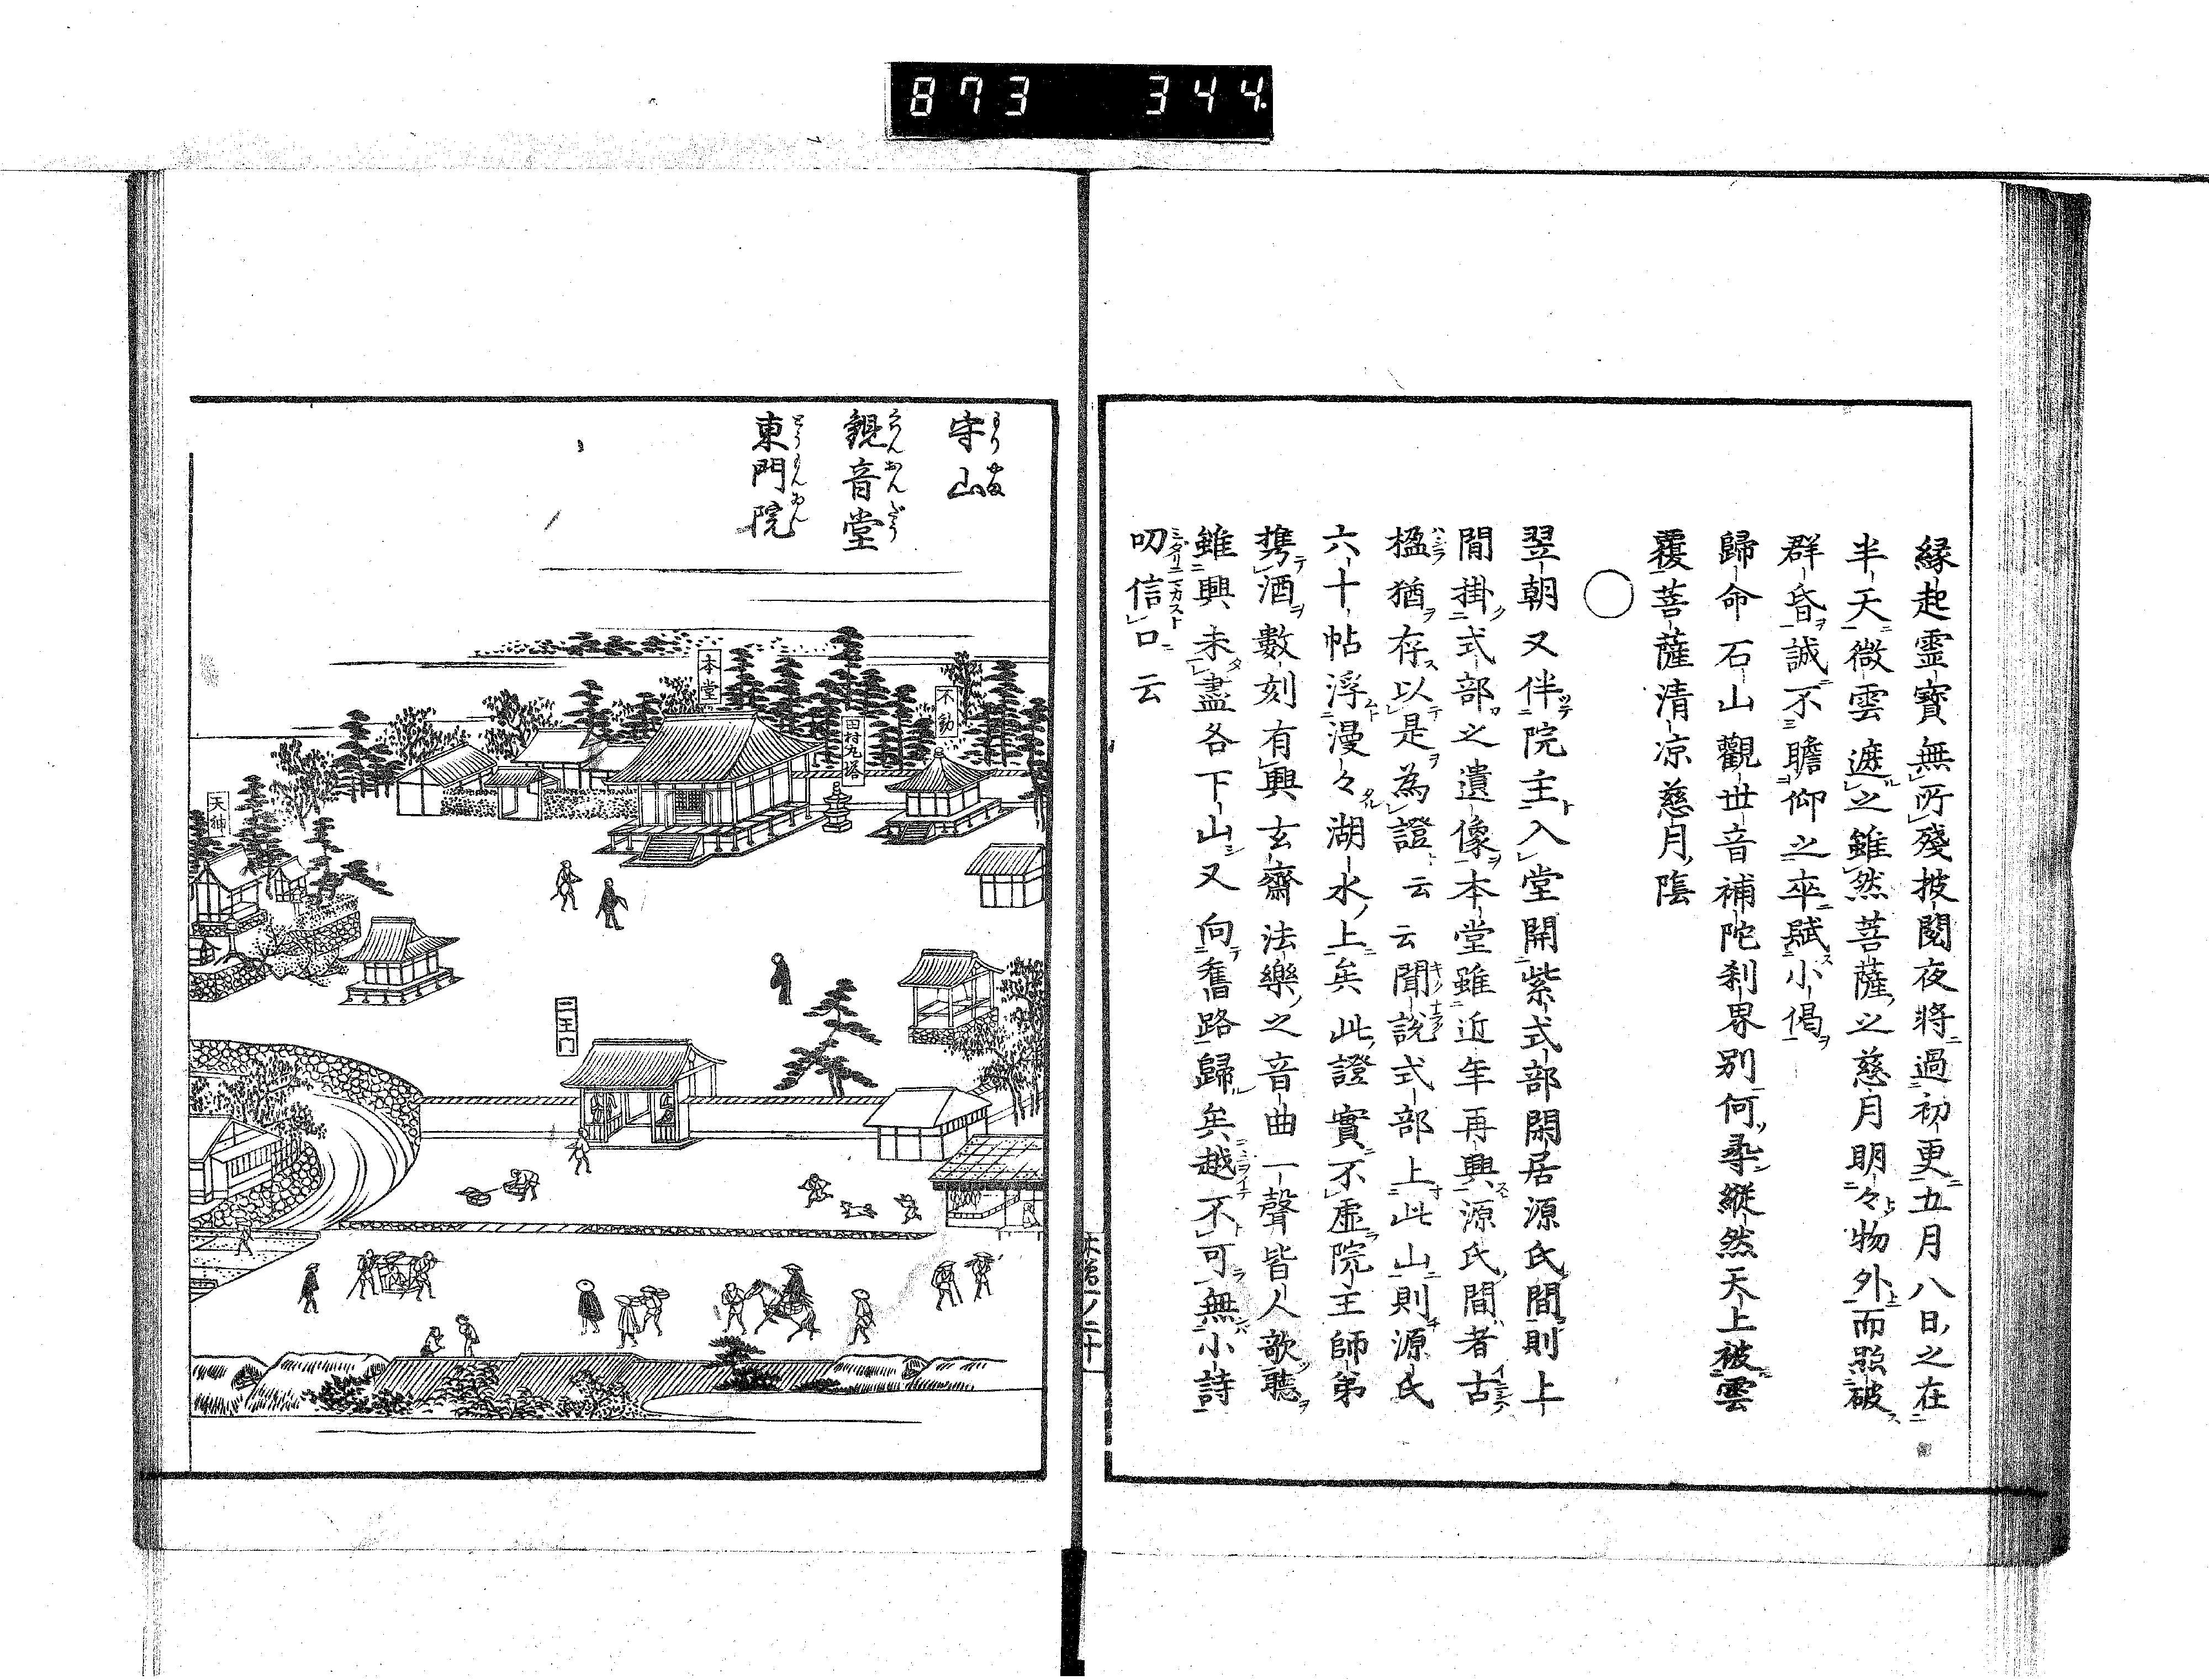 873 344.
縁起霊寳無所殘披閲夜將過初更五月八日之在
半天微雲遮之雖然菩薩之慈月明々物外而照破
群昏誠不瞻仰之卒賦小偈
歸命石山觀世音補陀刹界別何尋縱然天上被雲
覆菩薩清凉慈月陰
○
翌朝又伴院主入堂開紫式部閑居源氏間則上
間掛式部之遺像本堂雖近年再興源氏間者古
楹猶存以是為證云云聞説式部上此山則源氏
六十帖浮漫々湖水上矣此證實不虛院主師弟
携酒數刻有興玄齋法樂之音曲一聲皆人歌聽
雖興未盡各下山又向舊路歸矣越不可無小詩
叨信口云
守山
觀音堂
東門院
本堂
不動
田村丸塔
天神
二王門